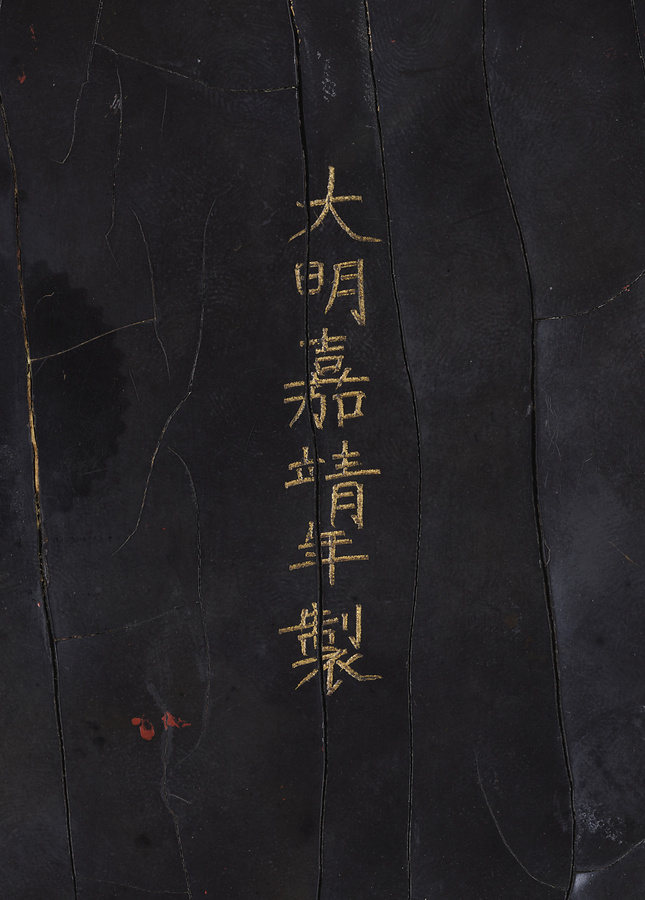 大明嘉靖年製